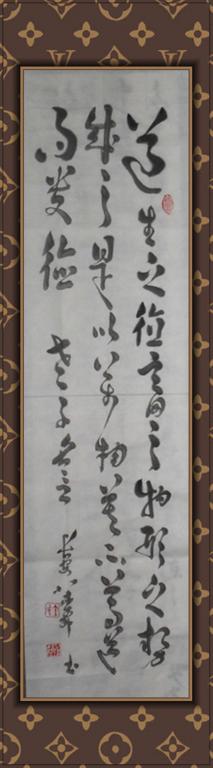 道生之德畜之物形之势
成之是以万物莫不尊道
而贵德 老子名言
书